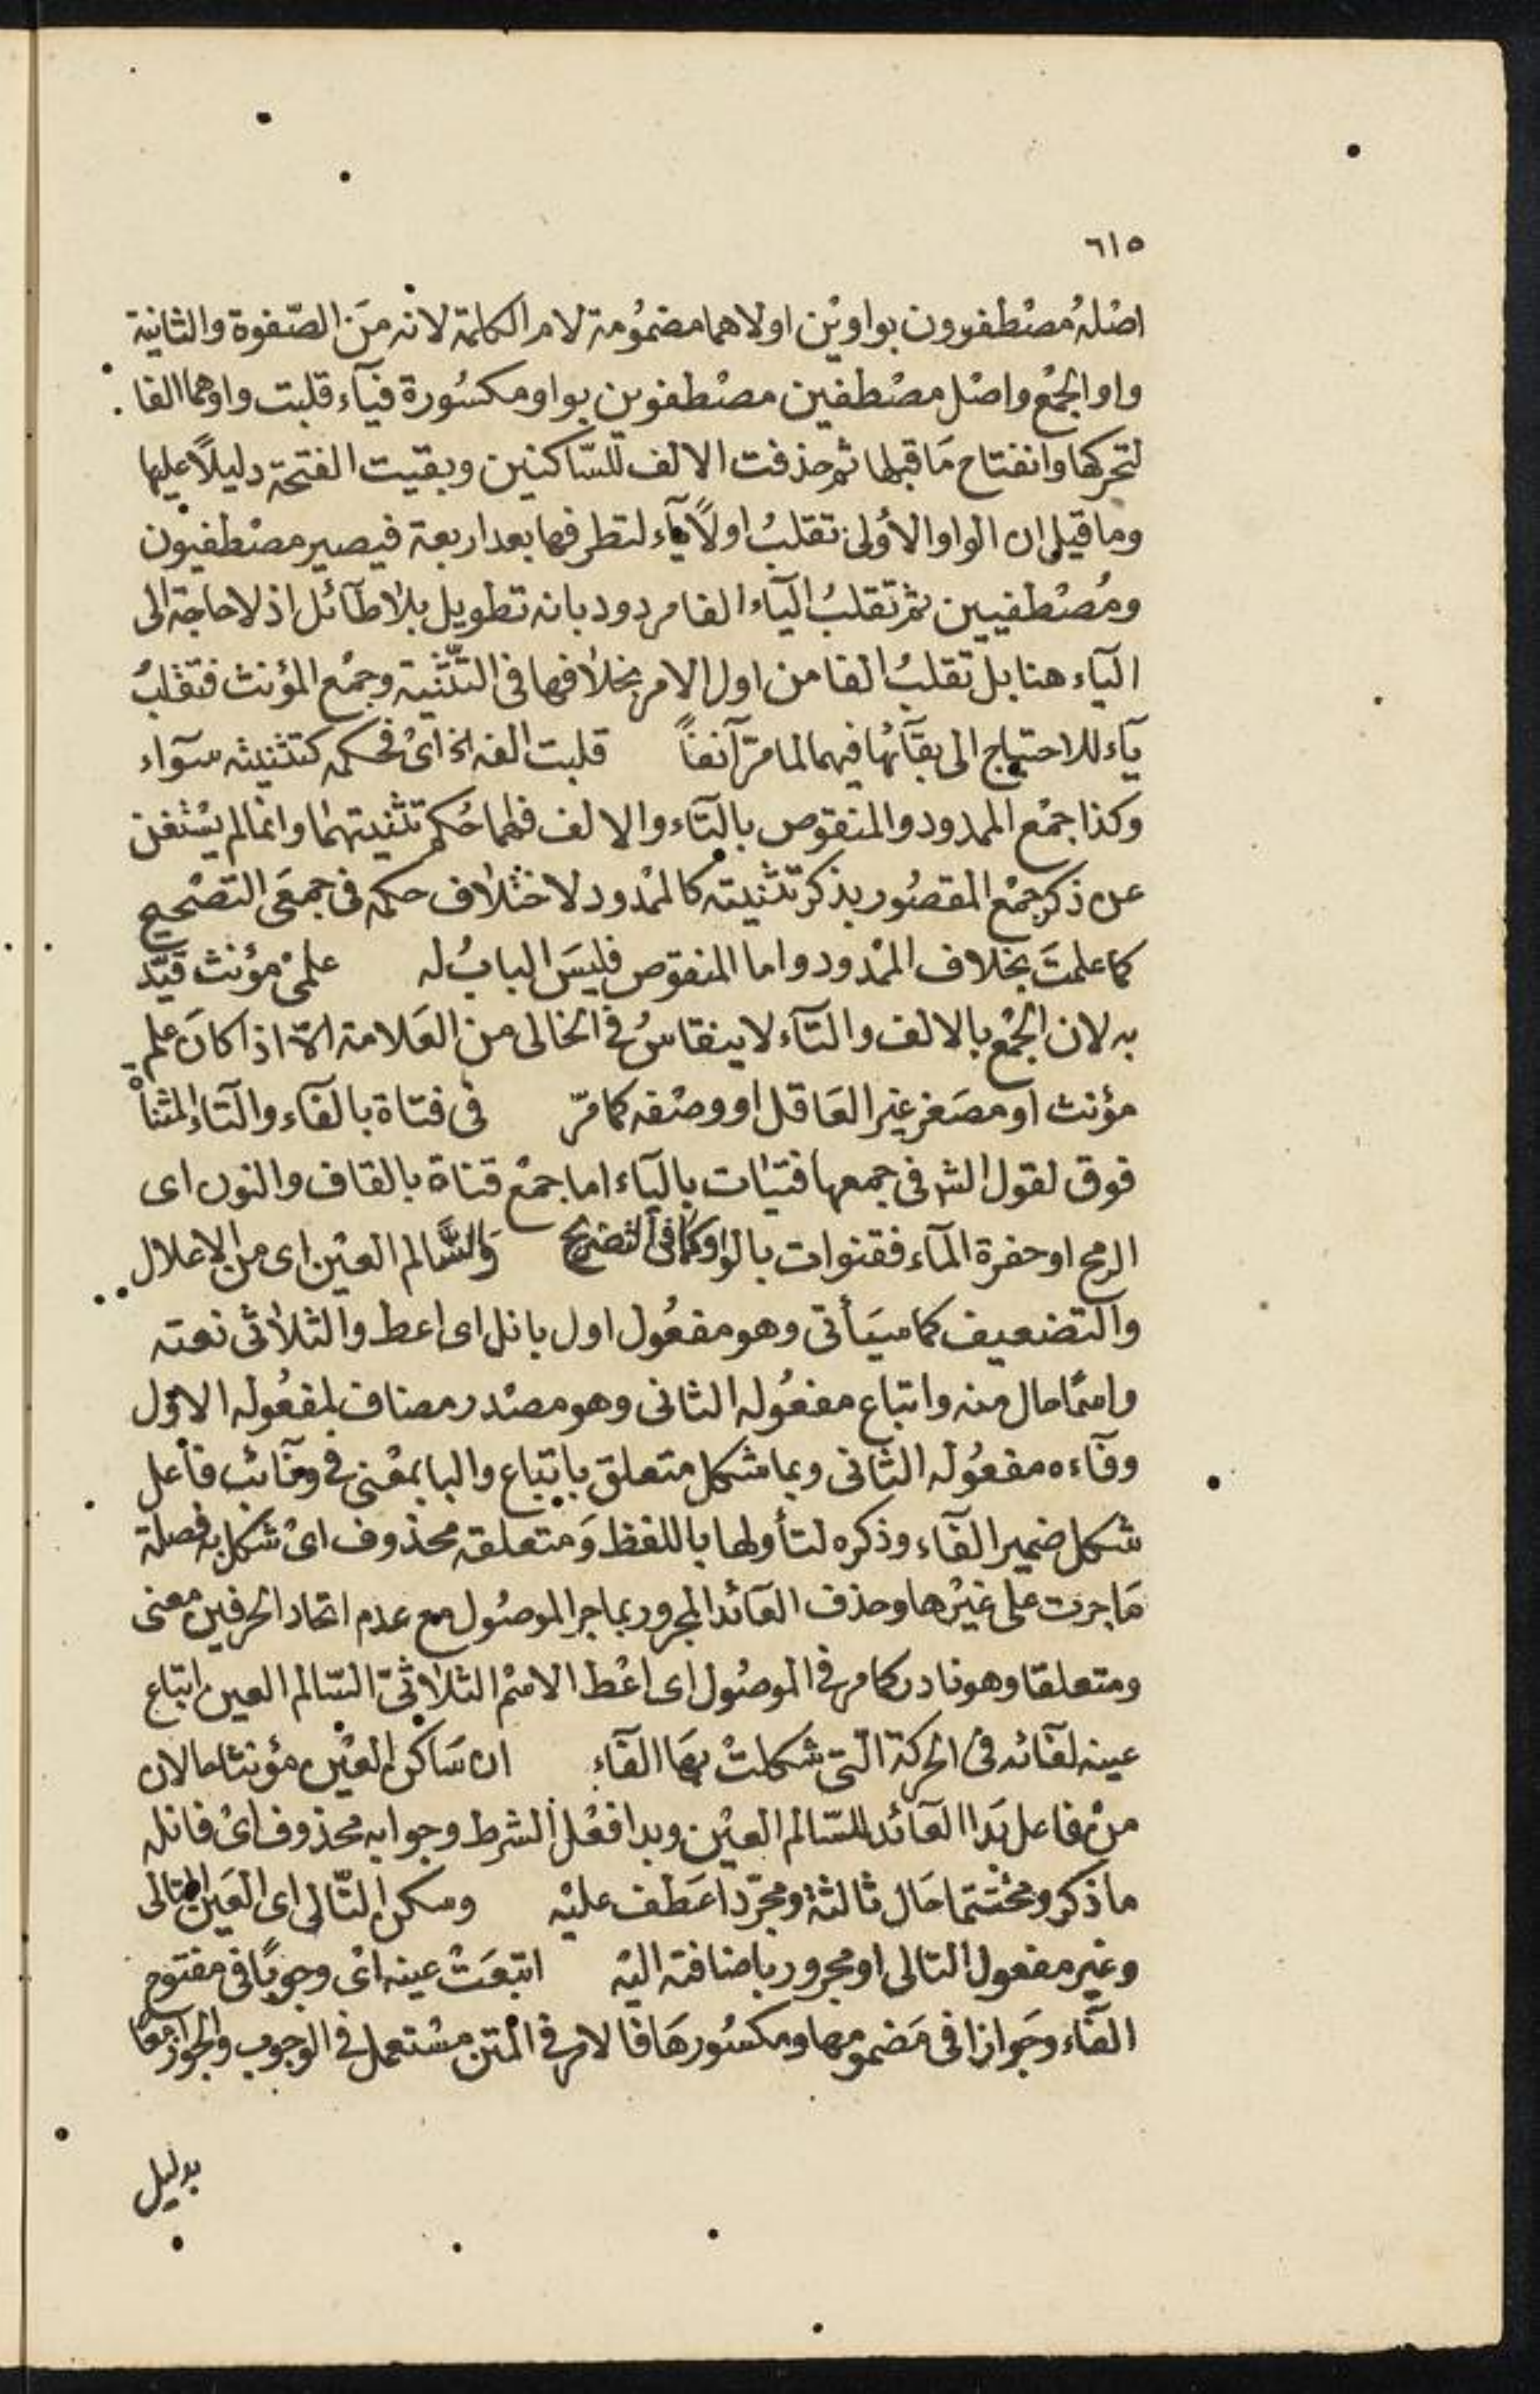 ٦١٥
اصْلهُ مصْطفوون بواويْن اولاهما مضمُومة لام الكلمة لانه منَ الصّفوة والثانية
واو الجمْع واصْل مصْطفين مصْطفوين بواو مكسُورة فيآء قلبت واوهما الفا
لتحركها وانفتاح مَا قبلها ثم حذفت الالف للسّاكنين وبقيت الفتحة دليلاً عليها
وما قيل ان الواو الأولى تقلبُ اولاً يآء لتطرفها بعد اربعة فيصير مصْطفيون
ومُصْطفيين ثم تقلبُ اليآء الفا مردود بانه تطويل بلا طآئل اذ لا حاجة الى
اليآء هنا بل تقلبُ الفا من اول الامر بخلافها فى التّثنية وجمْع المؤنث فتقلبُ
يآء للاحتياج الى بقآئها فيهما لما مرّ آنفاً قلبت الفه الخ اىْ فحكمه كتثنيته سوآء
وكذا جمْع الممدود والمنقوص بالتآء والالف فلهما حُكم تثنيتهما وانما لم يسْتغن
عن ذكر جمْع المقصُور بذكر تثنيته كالممْدود لاختلاف حكمه فى جمعَى التصْحيح
كما علمتَ بخلاف الممْدود واما المنقوص فليسَ البابُ له علمىْ مؤنث قيّد
به لان الجمْع بالالف والتآء لا ينقاسُ فى الخالى من العَلامة الاّ اذا كانَ علم
مؤنث او مصَغر غير العَاقل او وصْفه كما مرّ فى فتاة بالفآء والتآء المثناْ
فوق لقول الش فى جمعها فتيَات باليآء اما جمْع قناة بالقاف والنون اى
الرمح او حفرة المآء فقنوات بالواو كما فى التصْريح وَالسَّالم العيْن اى من الاعلال
والتضعيف كما سيَأتى وهو مفعُول اول بانل اى اعط والثلاثى نعته
واسمًا حال منه واتباع مفعُوله الثانى وهو مصْدر مضاف لمفعُوله الاول
وفآءه مفعُوله الثانى وبما شكل متعلق باتباع والبا بمعْنى فى ونآئب فاعل
شكل ضمير الفآء وذكره لتأولها باللفظ وَمتعلقه محذوف اىْ شكل به فصلة
مَا جرت على غيْرها وحذف العآئد المجرور بما جر الموصُول مع عدم اتحاد الحرفين معنى
ومتعلقا وهو نادر كما مر فى الموصُول اى اعْط الاسْم الثلاثىّ السّالم العين اتباع
عينه لفآئه فى الحركة الّتى شكلتْ بهَا الفآء ان سَاكن العيْن مؤنثا حالان
منْ فاعل بَدا العآئد للسّالم العيْن وبدا فعْل الشرط وجوابه محذوف اىْ فانله
ما ذكر ومختتما حَال ثالثة ومجَرّدا عَطف عليْه وسكن التّالى اى العَين التالى
وغير مفعول التالى او مجرور باضافته اليْه اتبعَتْ عينه اىْ وجوبًا فى مفتوح
الفآء وجَوازا فى مَضمومها ومكسُورهَا فالامر فى المتن مسْتعمل فى الوجوب والجواز معًا
بدليل